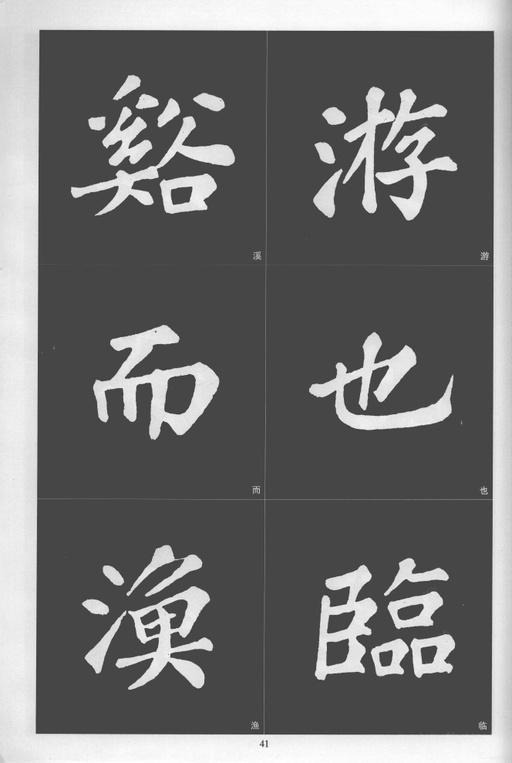 游
游
也
也
臨
临
谿
溪
而
而
漁
渔
41